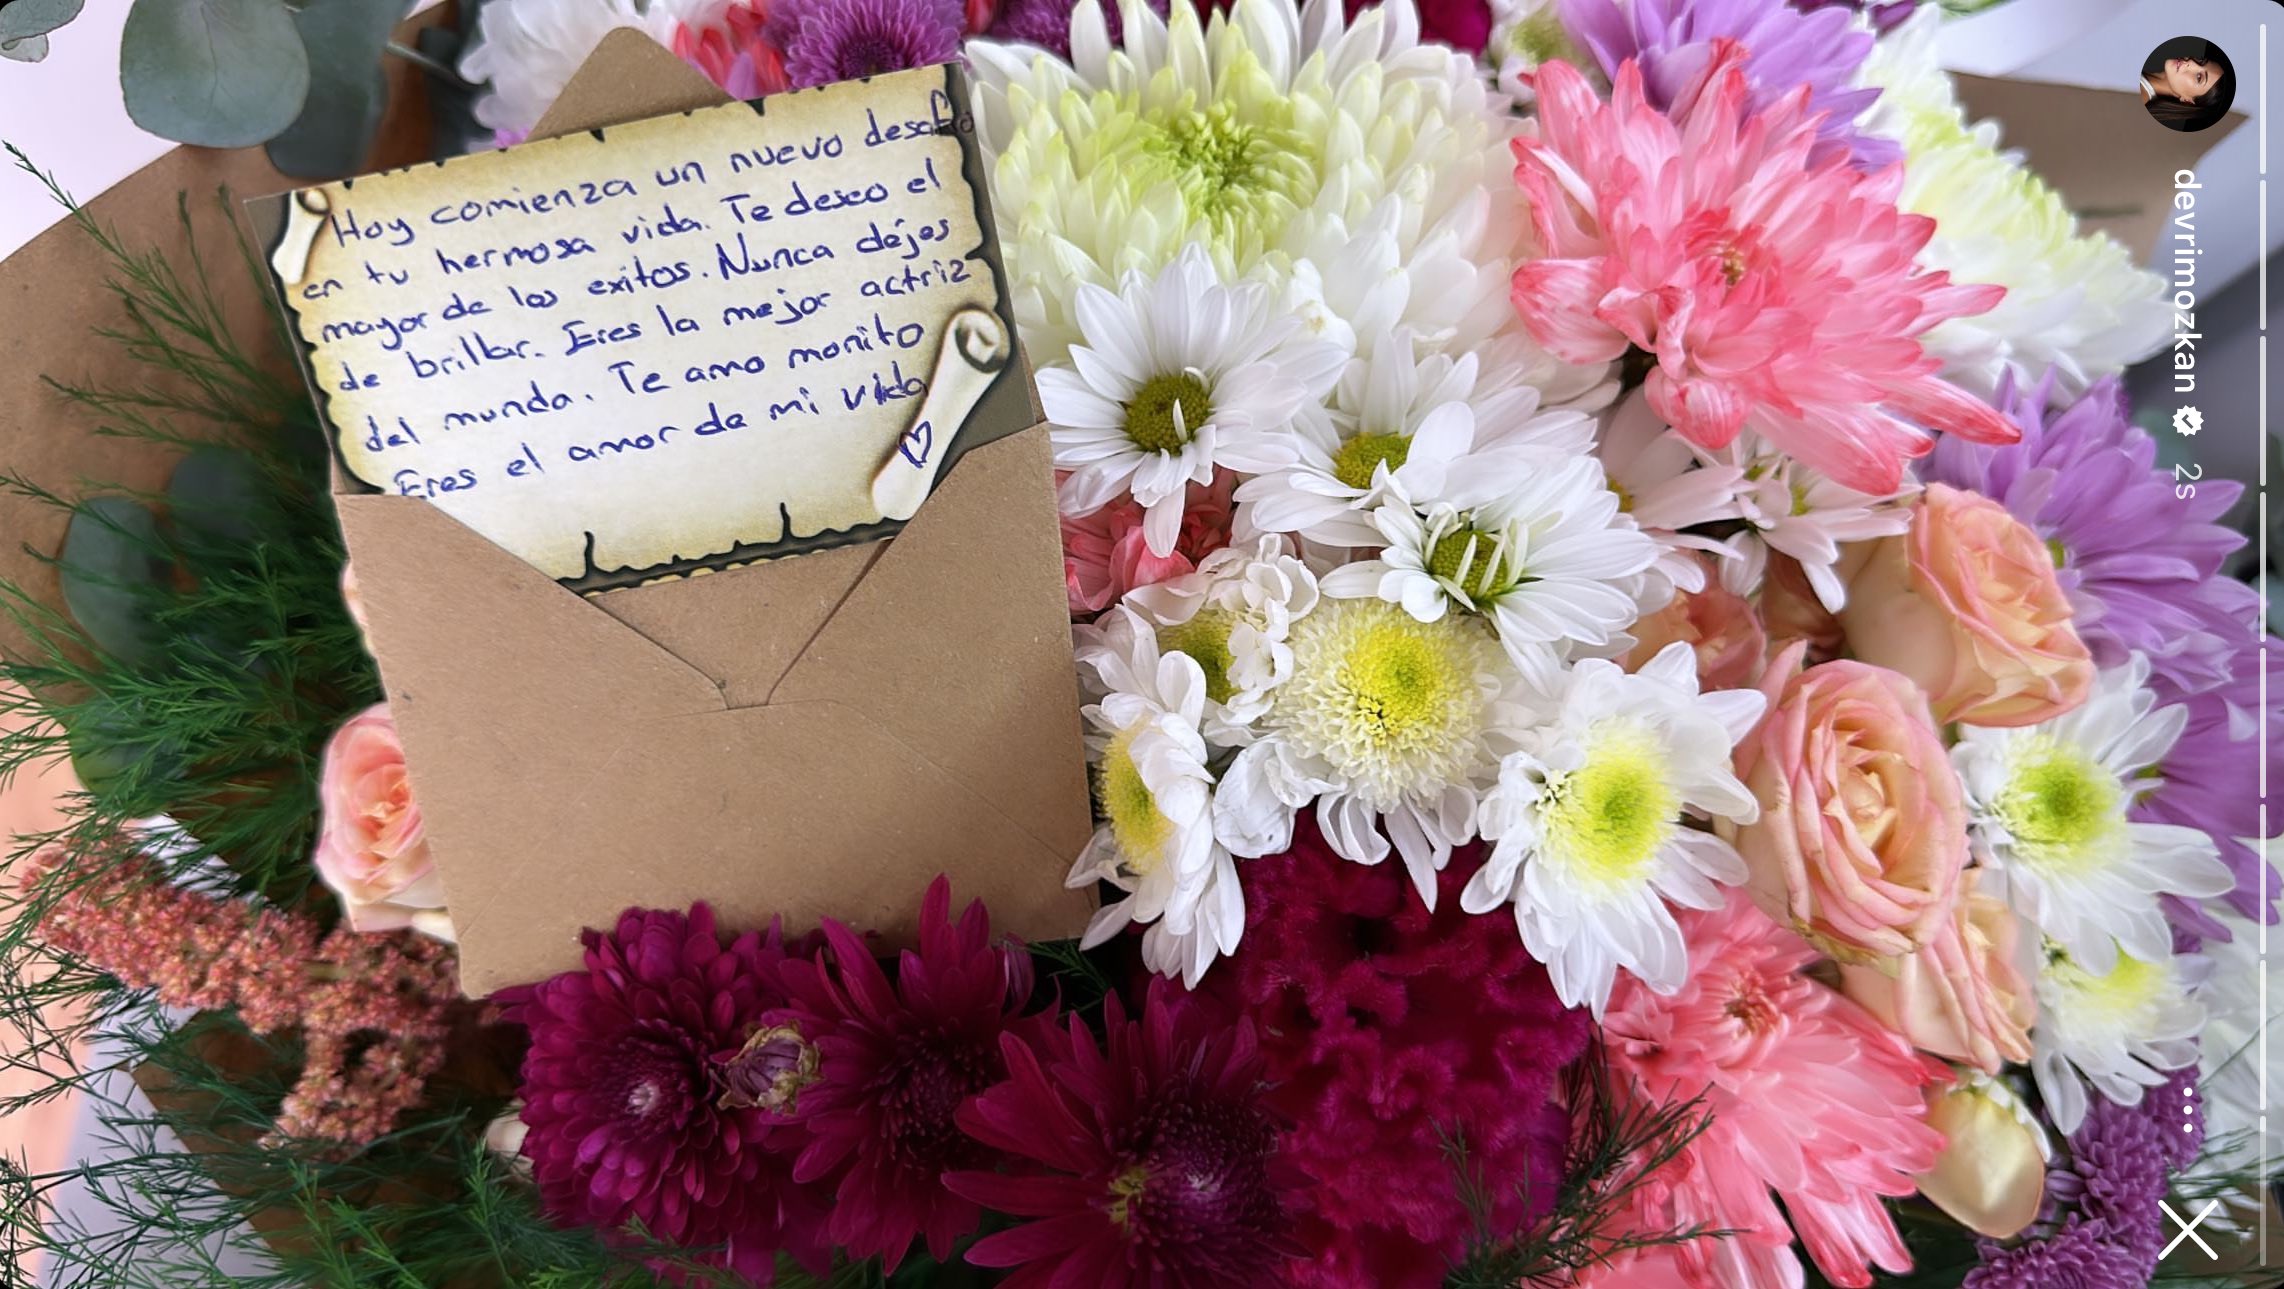 Hoy comienza un nuevo desafío
en tu hermosa vida. Te deseo el
mayor de los exitos. Nunca déjes
de brillar. Eres la mejor actriz
del mundo. Te amo monito
Eres el amor de mi vida
devrimozkan 2s